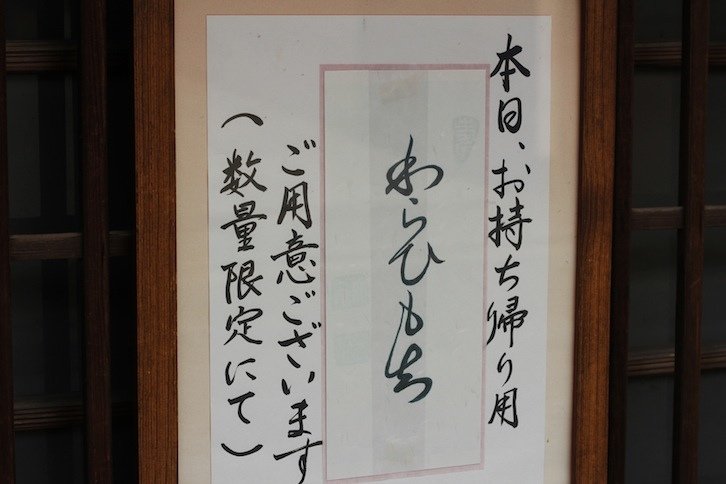 本日、お持ち帰り用
わらひもち
ご用意ございます
(数量限定にて)